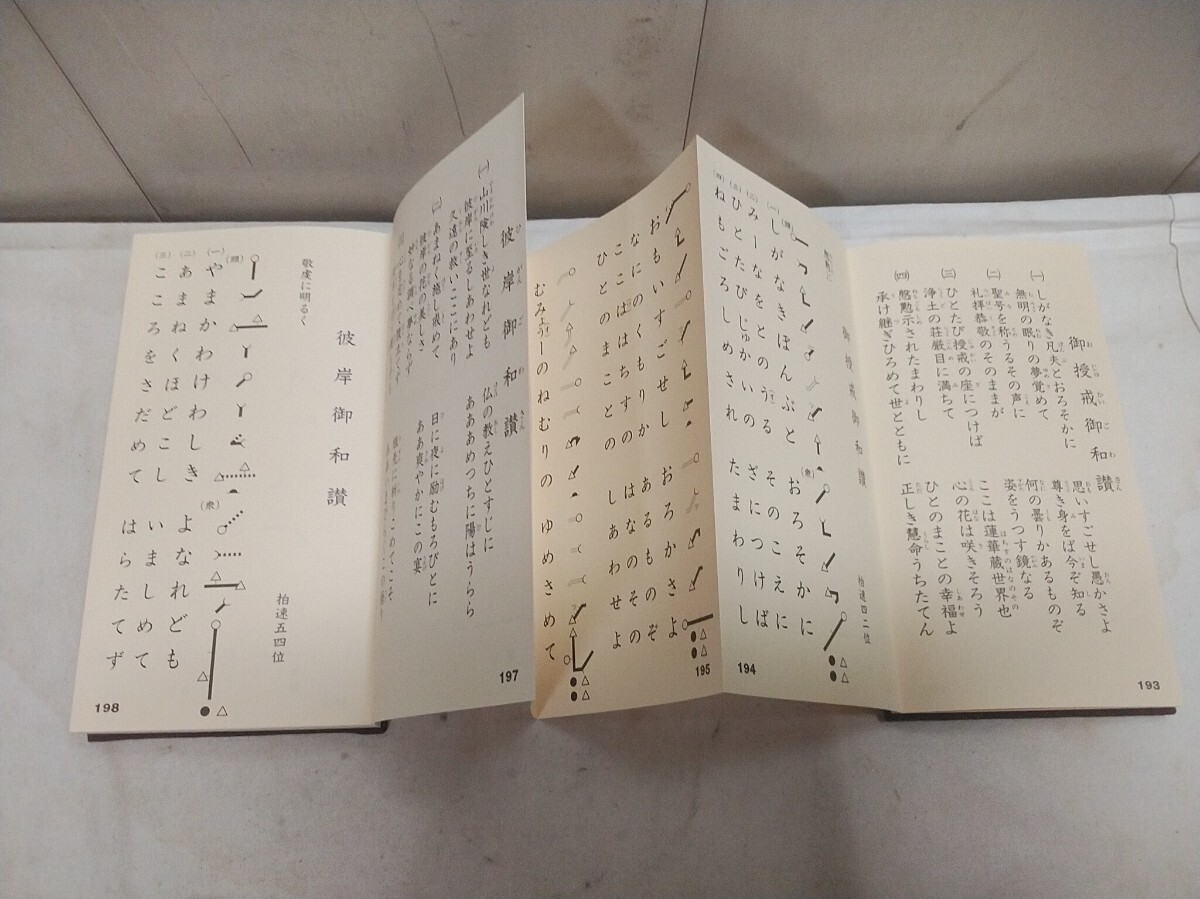 御授戒御和讃
(一) しがなき凡夫とおろそかに 思いすごせし愚かさよ
無明の眠りの夢覚めて 尊き身をば今ぞ知る
(二) 聖号を称うるその声に 何の曇りかあるものぞ
礼拝恭敬のそのままが 姿をうつす鏡なる
(三) ひとたび授戒の座につけば ここは蓮華蔵世界也
浄土の荘厳目に満ちて 心の花は咲きそろう
(四) 慇懃示されたまわりし ひとのまことの幸福よ
承け継ぎひろめて世とともに 正しき慧命うちたてん
193
御授戒御和讃
拍速四二位
(一) しがなきぼんぶと おろそかに
(二) みーなをとのうる そのこえに
(三) ひとたびじゅかいの ざにつけば
(四) ねもごろしめされ たまわりし
194
おもいすごせし おろかさよ
なにのくもりか あるものぞ
ここははちすの はなのその
ひとのまことの しあわせよ
195
むみょうーのねむりの ゆめさめて
彼岸御和讃
(一) 山川険しき世なれども 仏の教えひとすじに
彼岸に至るしあわせよ あああめつちに陽はうらら
久遠の救いここにあり
(二) あまねく施し戒めて 日に夜に励むもろびとに
彼岸の花の美しさ ああ爽やかにこの宴
やなる調べ夢ならず
197
彼岸御和讃
敬虔に明るく
拍速五四位
(一) やまかわけわしき よなれども
(二) あまねくほどこし いましめて
(三) こころをさだめて はらたてず
198